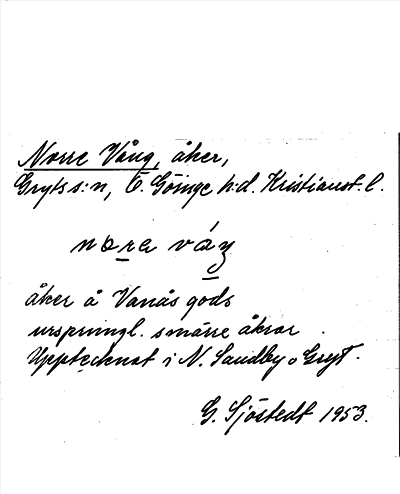 Norre Vång, åker,
Gryts s:n, Ö. Göinge h:d. Kristianst. l.
nore váŋ
åker å Vanås gods
ursprungl. smärre åkrar.
Upptecknat i N. Sandby o Gryt.
G. Sjöstedt 1953.